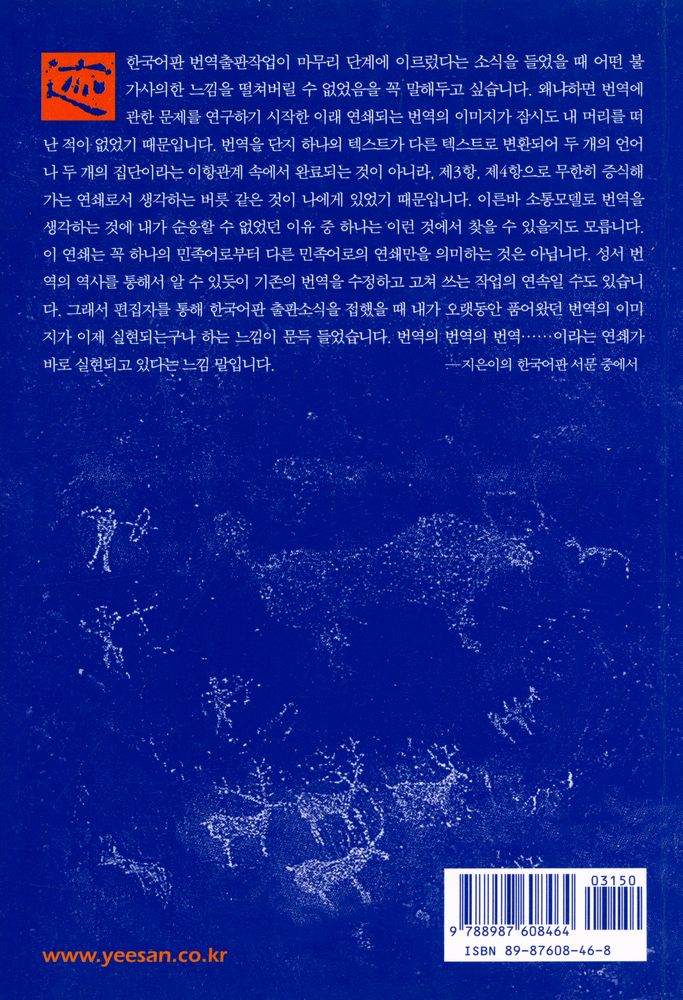 한국어판 번역출판작업이 마무리 단계에 이르렀다는 소식을 들었을 때 어떤 불
가사의한 느낌을 떨쳐버릴 수 없었음을 꼭 말해두고 싶습니다. 왜냐하면 번역에
관한 문제를 연구하기 시작한 이래 연쇄되는 번역의 이미지가 잠시도 내 머리를 떠
난 적이 없었기 때문입니다. 번역을 단지 하나의 텍스트가 다른 텍스트로 변환되어 두 개의 언어
나 두 개의 집단이라는 이항관계 속에서 완료되는 것이 아니라, 제3항, 제4항으로 무한히 증식해
가는 연쇄로서 생각하는 버릇 같은 것이 나에게 있었기 때문입니다. 이른바 소통모델로 번역을
생각하는 것에 내가 순응할 수 없었던 이유 중 하나는 이런 것에서 찾을 수 있을지도 모릅니다.
이 연쇄는 꼭 하나의 민족어로부터 다른 민족어로의 연쇄만을 의미하는 것은 아닙니다. 성서 번
역의 역사를 통해서 알 수 있듯이 기존의 번역을 수정하고 고쳐 쓰는 작업의 연속일 수도 있습니
다. 그래서 편집자를 통해 한국어판 출판소식을 접했을 때 내가 오랫동안 품어왔던 번역의 이미
지가 이제 실현되는구나 하는 느낌이 문득 들었습니다. 번역의 번역의 번역……이라는 연쇄가
바로 실현되고 있다는 느낌 말입니다.
—지은이의 한국어판 서문 중에서
03150
9 788987 608464
ISBN 89-87608-46-8
www.yeesan.co.kr